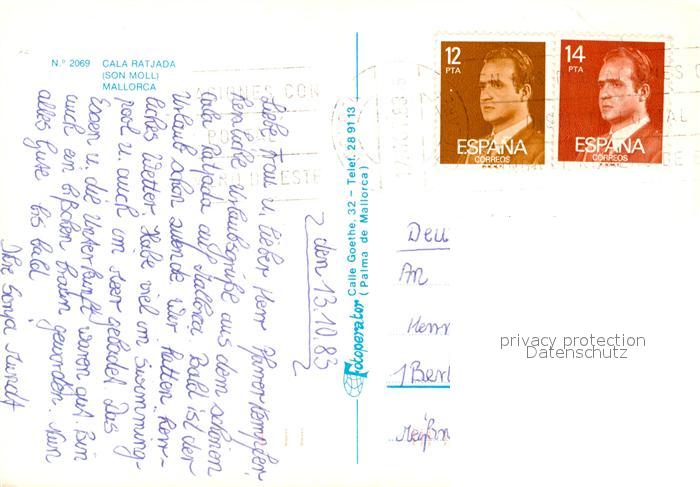 N.º 2069 CALA RATJADA
(SON MOLL)
MALLORCA
12
PTA
ESPAÑA
CORREOS
14
PTA
ESPAÑA
CORREOS
den 13.10.83
Liebe Frau u. lieber Herr
liebe Urlaubsgrüße aus dem schönen
Cala Ratjada auf Mallorca. Bald ist der
Urlaub schon zuende. Wir hatten herr-
liches Wetter. Habe viel im Swimming-
pool u. auch im Meer gebadet. Das
Essen u. die Unterkunft waren gut. Bin
auch ein bißchen braun geworden. Nun
alles Gute bis bald
Ihre Sonja
Fotoperator Calle Goethe, 32 - Telef. 28 91 13
(Palma de Mallorca)
Deu
An
Herr
1 Berl
Meißn
privacy protection
Datenschutz